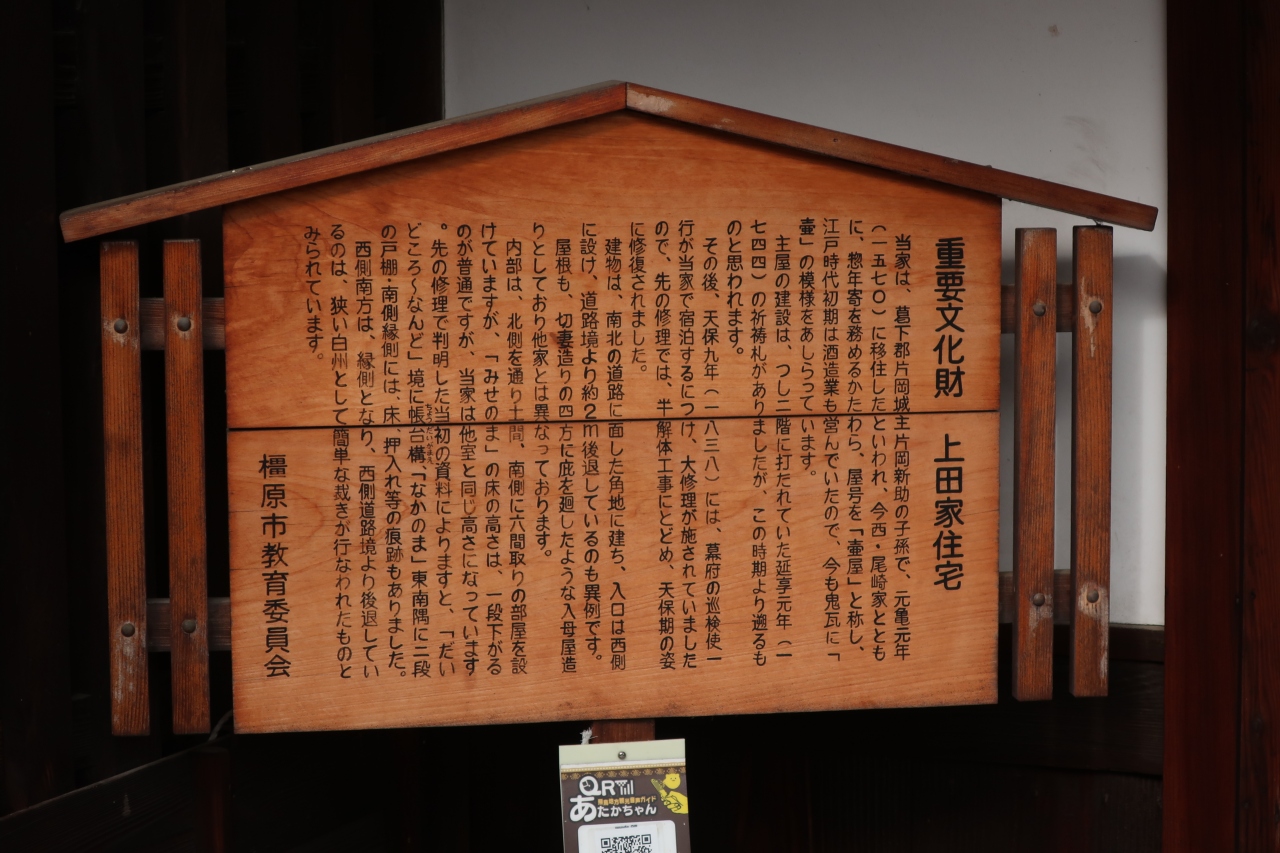 重要文化財　上田家住宅
当家は、葛下郡片岡城主片岡新助の子孫で、元亀元年
(一五七〇)に移住したといわれ、今西・尾崎家ととも
に、惣年寄を務めるかたわら、屋号を「壷屋」と称し、
江戸時代初期は酒造業も営んでいたので、今も鬼瓦に「
壷」の模様をあしらっています。
主屋の建設は、つし二階に打たれていた延享元年(一
七四四)の祈祷札がありましたが、この時期より遡るも
のと思われます。
その後、天保九年(一八三八)には、幕府の巡検使一
行が当家で宿泊するにつけ、大修理が施されていました
ので、先の修理では、半解体工事にとどめ、天保期の姿
に修復されました。
建物は、南北の道路に面した角地に建ち、入口は西側
に設け、道路境より約2m後退しているのも異例です。
屋根も、切妻造りの四方に庇を廻したような入母屋造
りとしており他家とは異なっております。
内部は、北側を通り土間、南側に六間取りの部屋を設
けていますが、「みせのま」の床の高さは、一段下がる
のが普通ですが、当家は他室と同じ高さになっています
。先の修理で判明した当初の資料によりますと、「だい
どころ〜なんど」境に帳台構、「なかのま」東南隅に二段
ちょうだいがまえ
の戸棚・南側縁側には、床、押入れ等の痕跡もありました。
西側南方は、縁側となり、西側道路境より後退してい
るのは、狭い白州として簡単な裁きが行なわれたものと
みられています。
橿原市教育委員会
QR
あたかちゃん